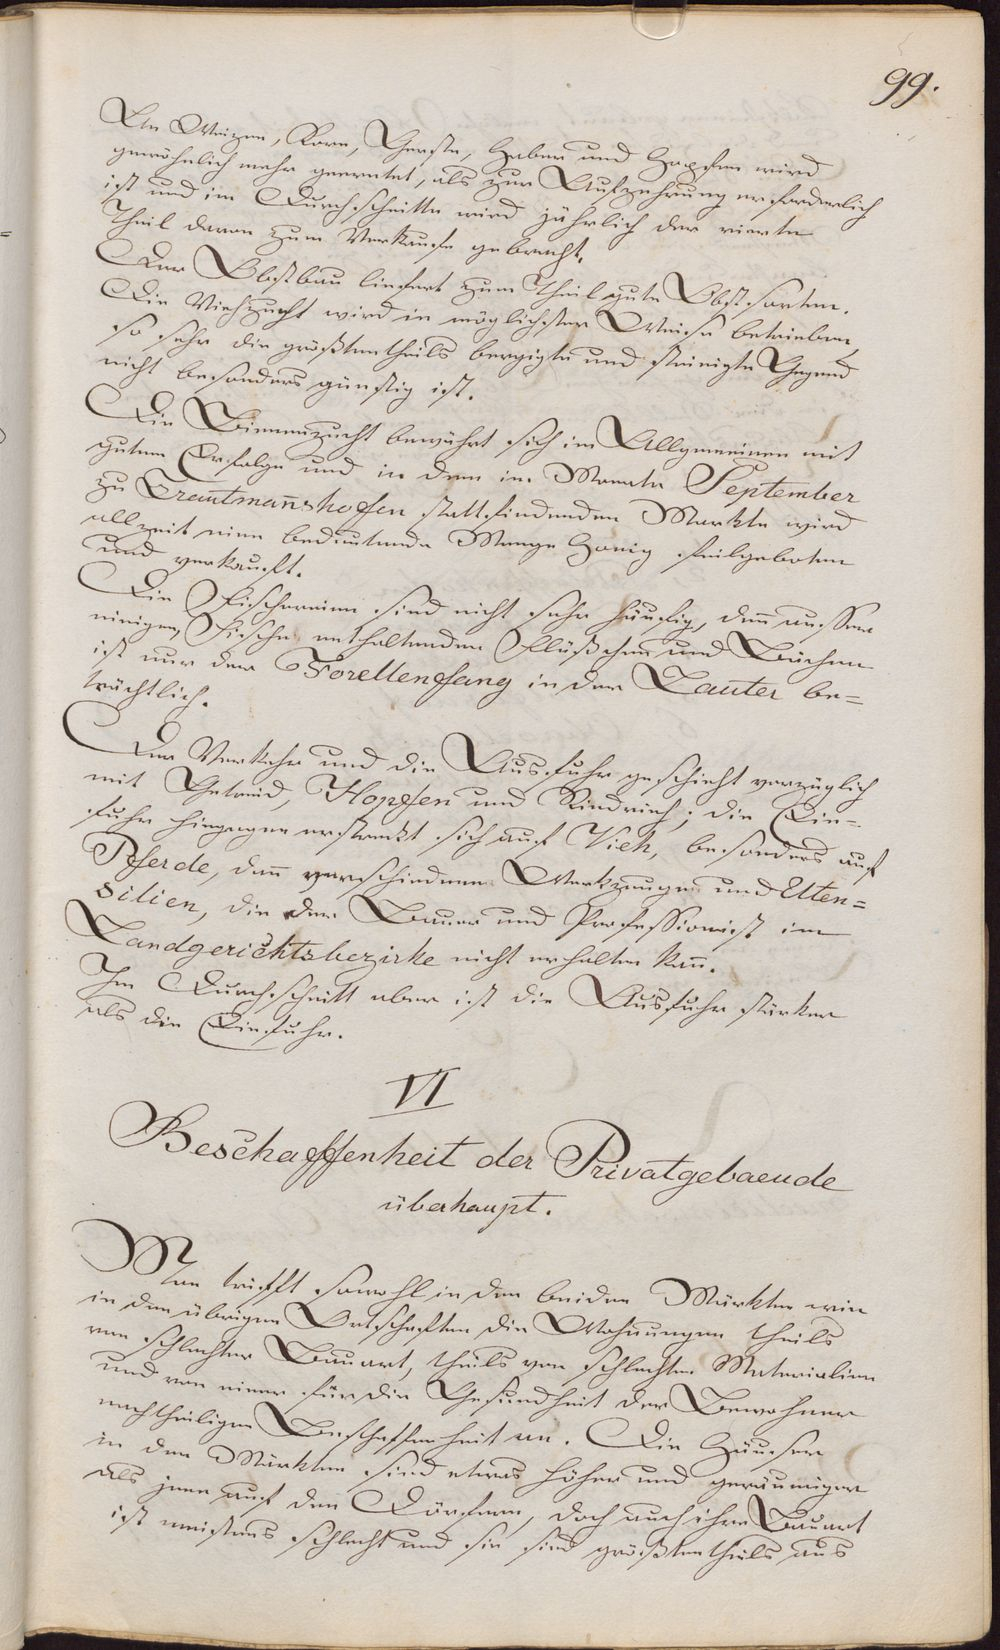 99.
An Weizen, Korn, Gerste, Haber und Hopfen wird
gewöhnlich mehr geerntet, als zur Aufzehrung erforderlich
ist und im Durchschnitte wird jährlich der vierte
Theil davon zum Verkaufe gebracht.
Der Obstbau liefert zum Theil gute Obstsorten.
Die Viehzucht wird in möglichster Weise betrieben,
so sehr die größtentheils bergigte und steinigte Gegend
nicht besonders günstig ist.
Die Bienenzucht bewährt sich im Allgemeinen mit
gutem Erfolge und in dem im Monate September
zu Trautmañshoffen stattfindenden Markte wird
allzeit eine bedeutende Menge Honig feilgeboten
und verkauft.
Die Fischereien sind nicht sehr häufig, deñ ausser
einigen, Fische enthaltenden Flüßchen und Bächen
ist nur der Forellenfang in der Lauter be=
trächtlich.
Der Verkehr und die Ausfuhr geschieht vorzüglich
mit Getreid, Hopfen und Rindvieh; die Ein=
fuhr hingegen erstreckt sich auf Vieh, besonders auf
Pferde, dañ verschiedene Werkzeuge und Uten=
silien, die der Bauer und Professionist im
Landgerichtsbezirke nicht erhalten kañ.
Im Durchschnitt aber ist die Ausfuhr stärker
als die Einfuhr.
VI
Beschaffenheit der Privatgebaeude
überhaupt.
Man trifft sowohl in den beiden Märkten wie
in den übrigen Ortschaften die Wohnungen theils
von schlechter Bauart, theils von schlechten Materialien
und von einer für die Gesundheit der Bewohner
nachtheiligen Beschaffenheit an. Die Häuser
in den Märkten sind etwas höher und geräumiger
als jene auf den Dörfern, doch auch ihre Bauart
ist meistens schlecht und sie sind größtentheils aus